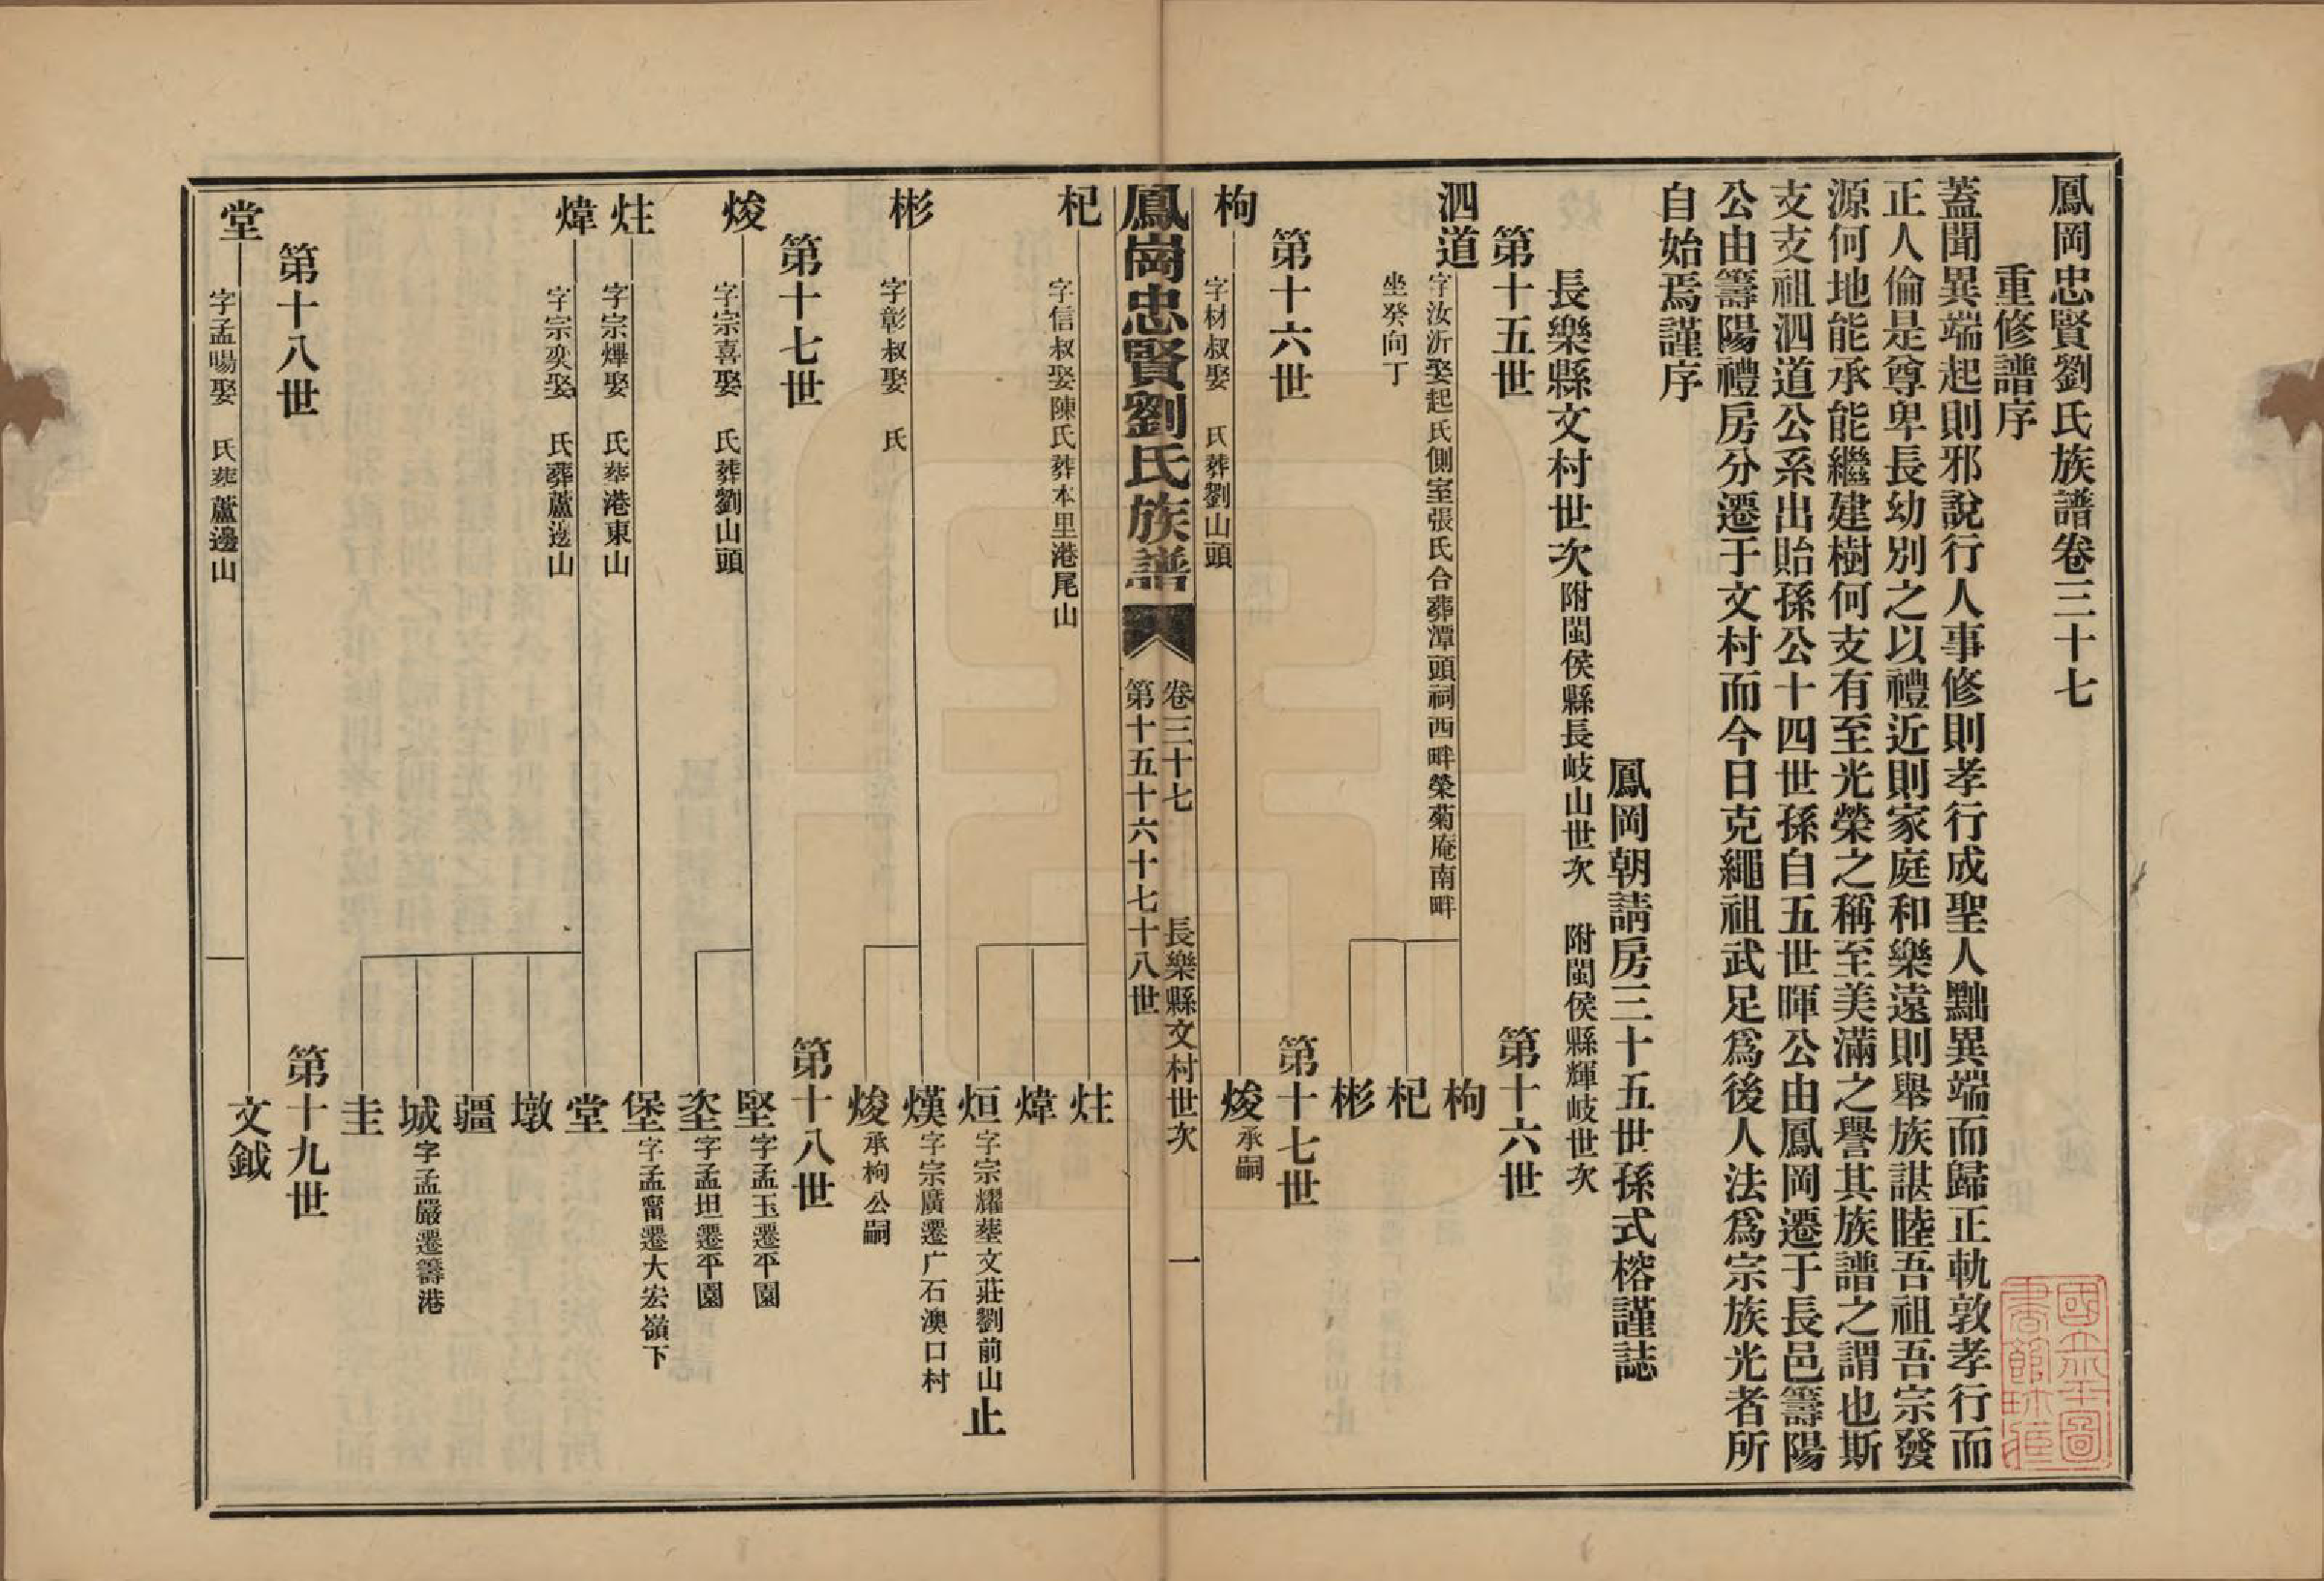 鳳岡忠賢劉氏族譜卷三十七
重修譜序
蓋聞異端起則邪說行人事修則孝行成聖人黜異端而歸正軌敦孝行而
正人倫是尊卑長幼別之以禮近則家庭和樂遠則舉族諶睦吾祖吾宗發
源何地能承能繼建樹何支有至光榮之稱至美滿之譽其族譜之謂也斯
支支祖泗道公系出貽孫公十四世孫自五世暉公由鳳岡遷于長邑籌陽
公由籌陽禮房分遷于文村而今日克繩祖武足爲後人法爲宗族光者所
自始焉謹序
鳳岡朝請房三十五世孫式榕謹誌
長樂縣文村世次附閩侯縣長岐山世次 附閩侯縣輝岐世次
第十五世 第十六世
泗道 字汝沂娶起氏側室張氏合葬潭頭祠西畔榮菊庵南畔
坐癸向丁
枸
杞
彬
第十六世 第十七世
枸 字材叔娶 氏葬劉山頭
焌承嗣
鳳崗忠賢劉氏族譜
卷三十七 長樂縣文村世次 一
第十五十六十七十八世
杞 字信叔娶陳氏葬本里港尾山
炷
煒
烜字宗耀塟文莊劉前山止
彬 字彰叔娶 氏
熯字宗廣遷广石澳口村
焌承枸公嗣
第十七世 第十八世
焌 字宗喜娶 氏葬劉山頭
堅字孟玉遷平園
垐字孟坦遷平園
炷 字宗燁娶 氏塟港東山
堡字孟甯遷大宏嶺下
煒 字宗奕娶 氏葬蘆邊山
堂
墩
疆
城字孟嚴遷籌港
圭
第十八世 第十九世
堂 字孟暘娶 氏塟蘆邊山
文鉞
國立北平圖
書館珍藏